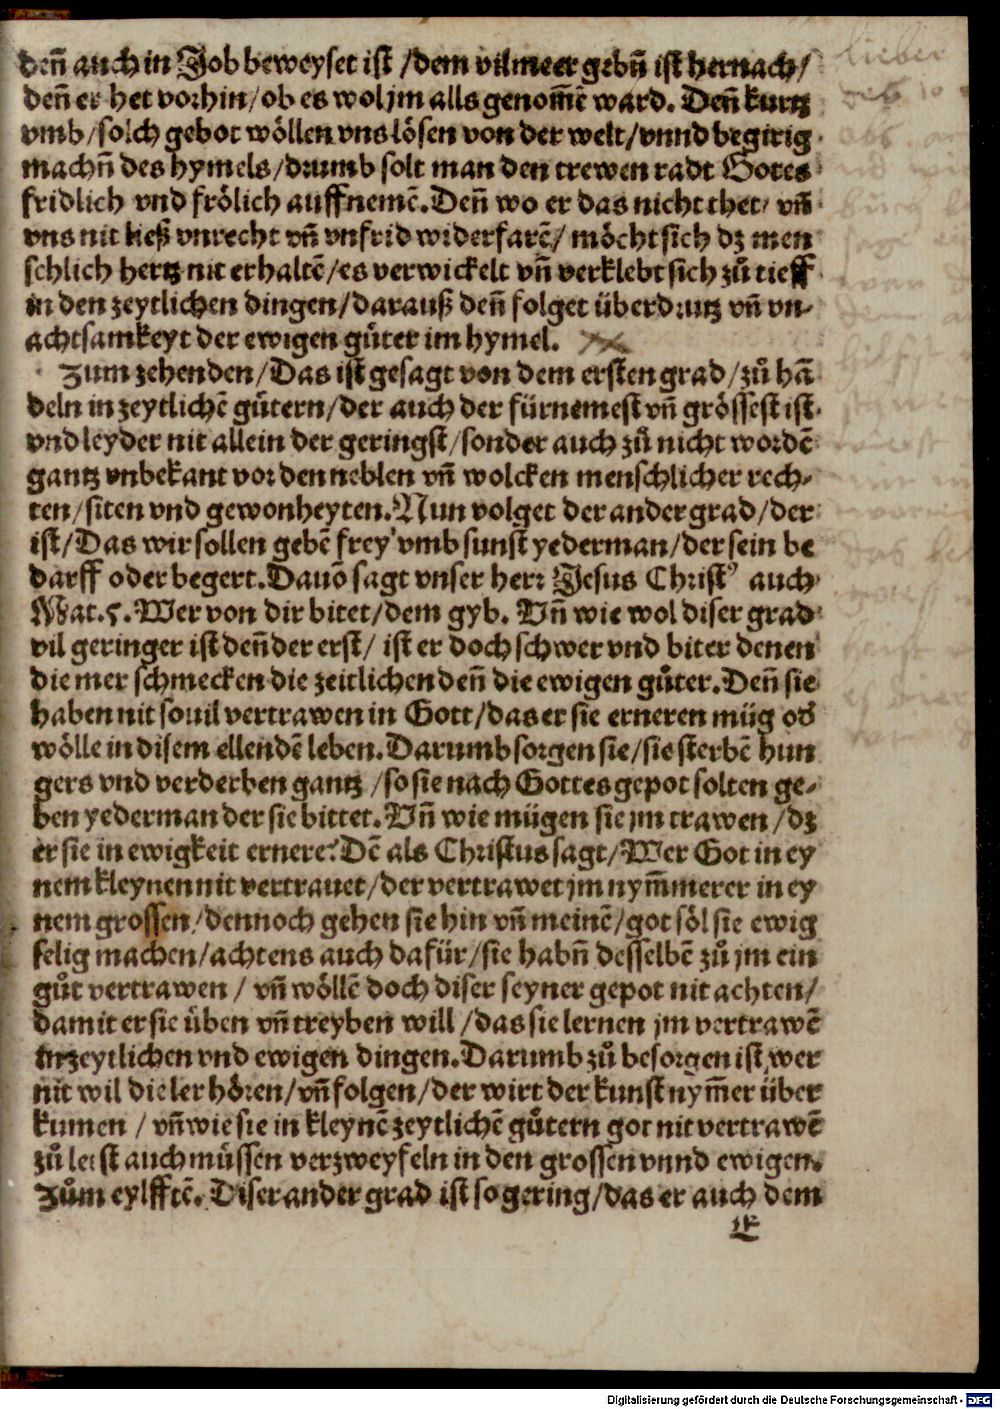 deñ auch in Job beweyset ist /dem vil meer gebñ ist hernach/
deñ er het vorhin/ob es wol jm alls genom̃ẽ ward. Deñ kurtz
vmb/solch gebot wöllen vns lösen von der welt/vnnd begirig
machñ des hymels/drumb solt man den trewen radt Gotes
fridlich vnd frölich auffnemẽ. Deñ wo er das nicht thet/ vñ
vns nit ließ vnrecht vñ vnfrid widerfarẽ/ möcht sich dz men
schlich hertz nit erhaltẽ/es verwickelt vñ verklebt sich zů tieff
in den zeytlichen dingen/darauß deñ folget überdrutz vñ vn-
achtsamkeyt der ewigen gůter im hymel.
Zum zehenden/Das ist gesagt von dem ersten grad/zů hã
deln in zeytlichẽ gůtern/der auch der fürnemest vñ grössest ist
vnd leyder nit allein der geringst/sonder auch zů nicht wordẽ
gantz vnbekant vor den neblen vñ wolcken menschlicher rech-
ten/siten vnd gewonheyten. Nun volget der ander grad/der
ist/Das wir sollen gebẽ frey vmb sunst yederman/der sein be
darff oder begert. Dauõ sagt vnser herr Jesus Christꝰ auch
Mat.5. Wer von dir bitet/dem gyb. Vñ wie wol diser grad
vil geringer ist deñ der erst/ ist er doch schwer vnd biter denen
die mer schmecken die zeitlichen deñ die ewigen gůter. Deñ sie
haben nit souil vertrawen in Gott/das er sie erneren müg oď
wölle in disem ellendẽ leben. Darumb sorgen sie/sie sterbẽ hun
gers vnd verderben gantz /so sie nach Gottes gepot solten ge-
ben yederman der sie bittet. Vñ wie mügen sie jm trawen/dz
er sie in ewigkeit ernere? Dẽ als Christus sagt/Wer Got in ey
nem kleynen nit vertrauet/der vertrawet jm nym̃merer in ey
nem grossen/dennoch gehen sie hin vñ meinẽ/got söl sie ewig
selig machen/achtens auch dafür/sie habñ desselbẽ zů jm ein
gůt vertrawen / vñ wöllẽ doch diser seyner gepot nit achten/
damit er sie üben vñ treyben will /das sie lernen jm vertrawẽ
in zeytlichen vnd ewigen dingen. Darumb zů besorgen ist, wer
nit wil die ler hören/vñ folgen/der wirt der kunst nym̃er über
kumen / vñ wie sie in kleynẽ zeytlichẽ gůtern got nit vertrawẽ
zů letst auch můssen verzweyfeln in den grossen vnnd ewigen.
Zům eylfftẽ. Diser ander grad ist so gering/das er auch dem
Digitalisierung gefördert durch die Deutsche Forschungsgemeinschaft - DFG